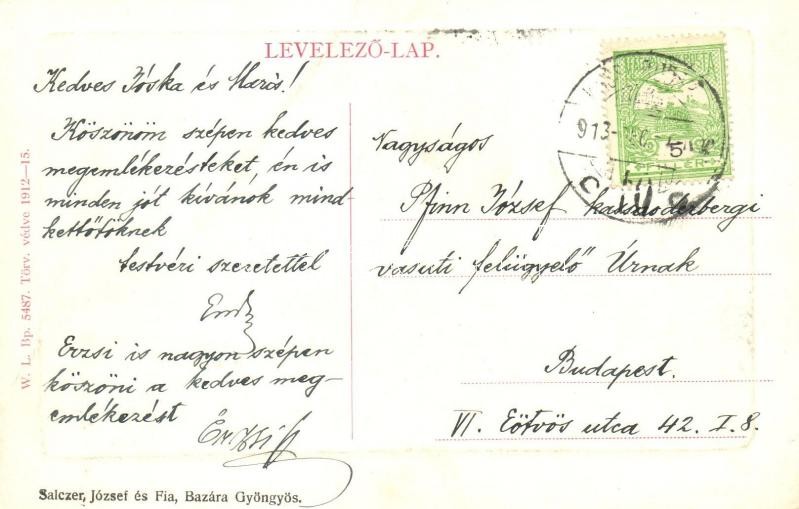 LEVELEZŐ-LAP.
Kedves Jóska és Maris!
Köszönöm szépen kedves
megemlékezésteket, én is
minden jót kívánok mind-
kettőtöknek
testvéri szeretettel
Erzsi is nagyon szépen
köszöni a kedves meg-
emlékezést
Erzsi
Nagyságos
Pfinn József kassaoderbergi
vasuti felügyelő Úrnak
Budapest.
VI. Eötvös utca 42. I. 8.
913
5
FILLÉR
W. L. Bp. 5487. Törv. védve 1912—15.
Salczer, József és Fia, Bazára Gyöngyös.